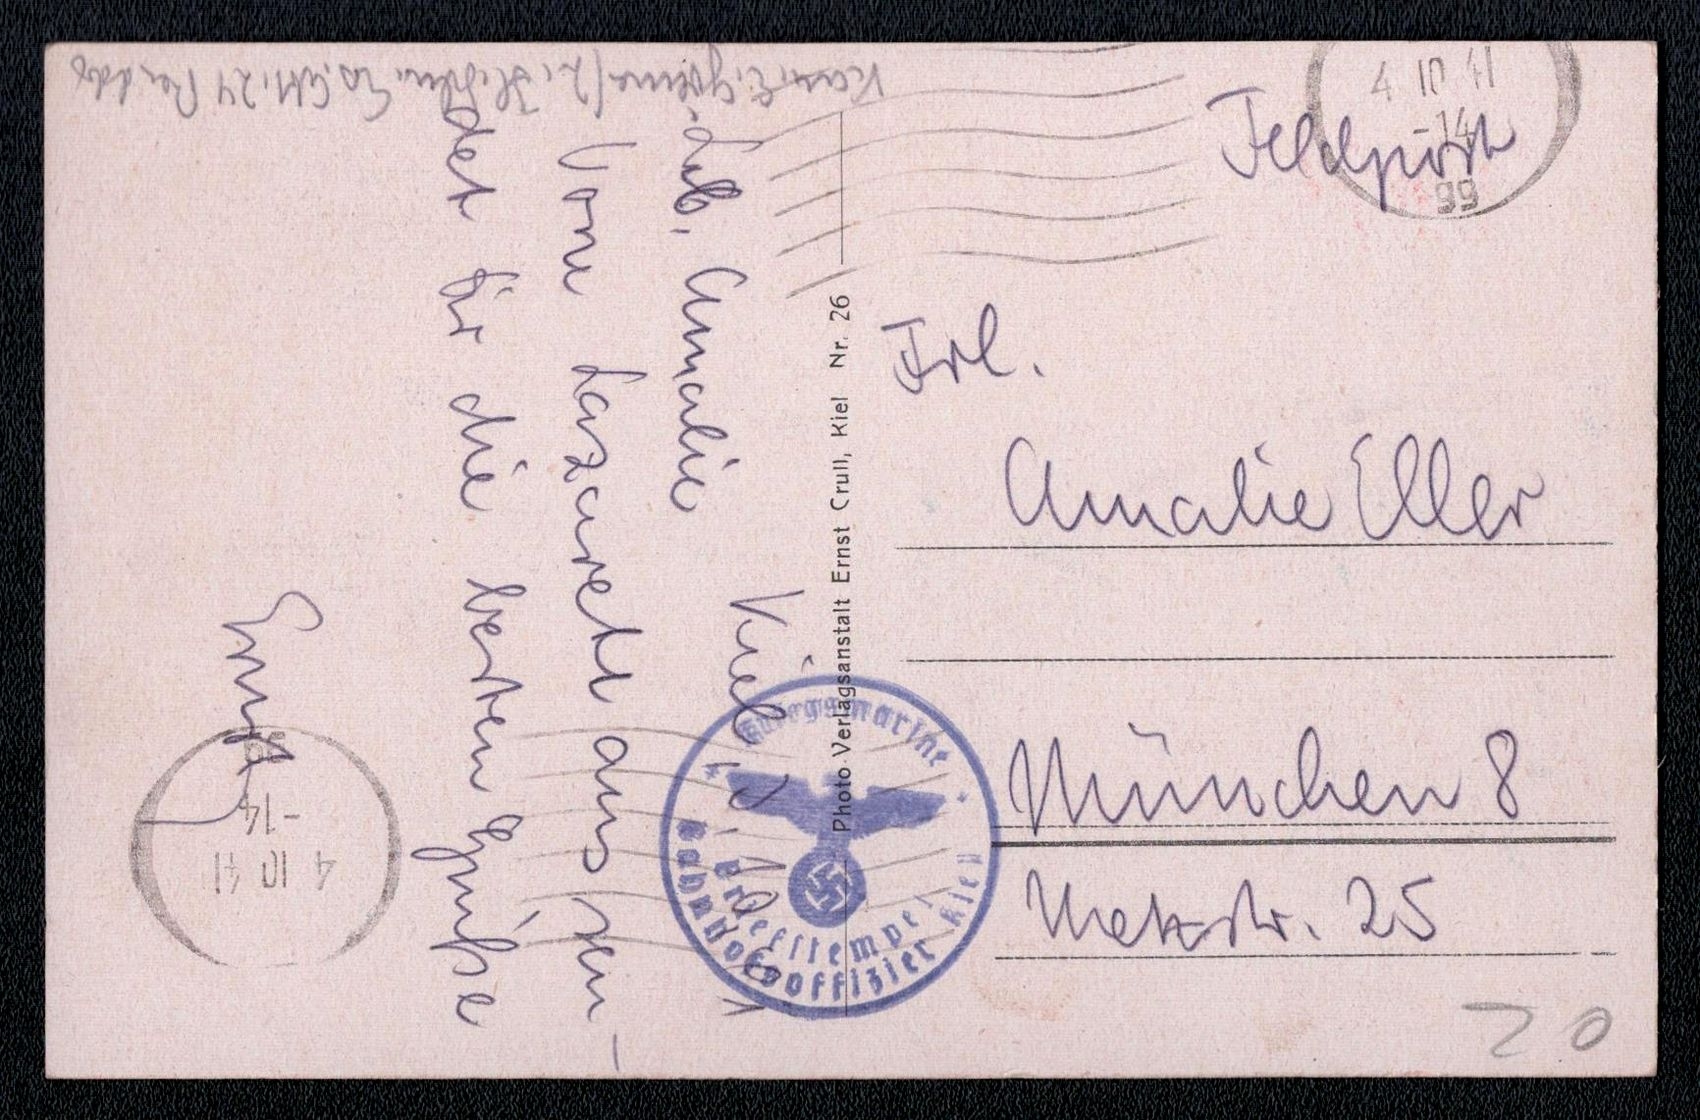 Feldpost
4 10 41
-14
Frl.
Amalie Eller
München 8
Metzstr. 25
20
Photo-Verlagsanstalt Ernst Crull, Kiel Nr. 26
Kriegsmarine
Briefstempel
Bahnhofsoffizier Kiel
Kiel
Lb. Amalie
Vom Lazarett aus sen-
det Dir die besten Grüße
Ernst
4 10 41
-14